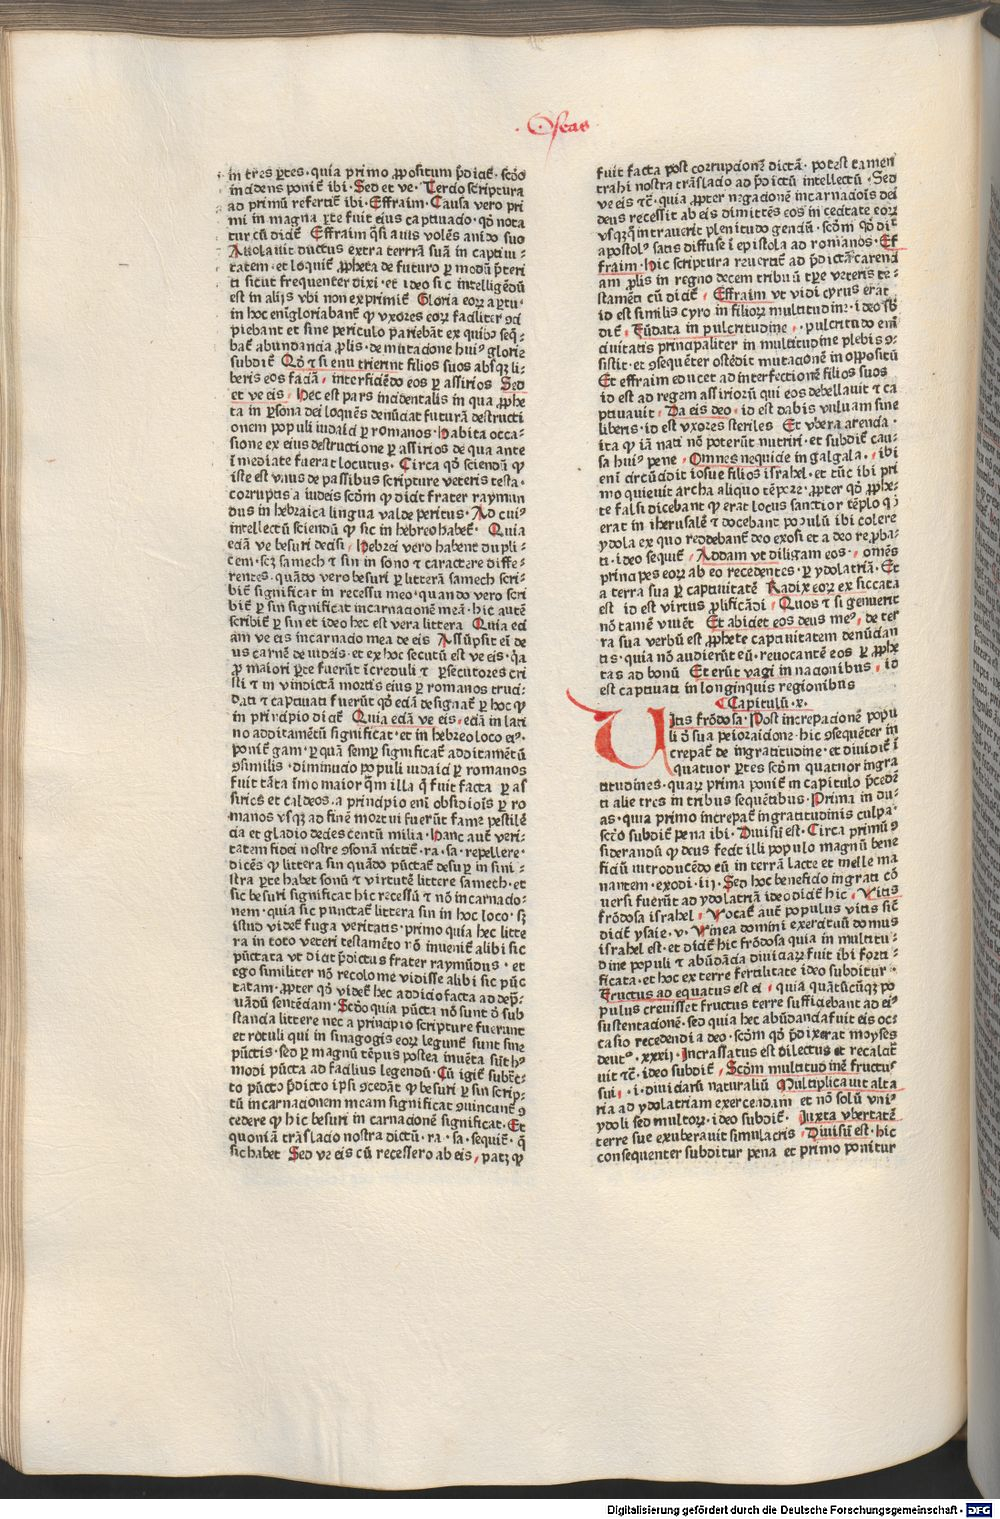 · Oseas ·
in tres ꝑtes · quia primo ꝓpositum p̄dicit̄ · scd̄o
incidens ponit̄ ibi · Sed et ve · Tercio scriptura
ad primū refertit̄ ibi · Effraim · Causa vero pri
mi in magna ꝑte fuit eius captiuacio · qd̄ nota
tur cū dicit̄ Effraim q̄si auis volēs anido suo
Auolauit ductus extra terrrā suā in captiui ·
tatem · et loquit̄ ꝓpheta de futuro ꝑ modū p̄teri
ti sicut frequenter dixi · et ideo sic intelligēdū
est in alijs vbi non exprimit̄ Gloria eoꝝ a partu ·
in hoc eni gloriabant̄ ꝙ vxores eoꝝ faciliter ꝯci
piebant et sine periculo pariebāt ex quibꝰ seq̄ ·
bat̄ abundancia ꝓlis · de mutacione huiꝰ glorie
subdit̄ Qd̄ ⁊ si enutrierint filios suos absqꝫ li ·
beris eos faciā · interficiēdo eos ꝑ assirios Sed
et ve eis · Hec est pars incidentalis in qua ꝓphe
ta in ꝑsona dei loquēs denūciat futurā destructi
onem populi iudaici ꝑ romanos · habita occa ·
sione ex eius destructione ꝑ assirios de qua ante
īmediate fuerat locutus · Circa qd̄ sciendū ꝙ
iste est vnus de passibus scripture veteris testa ·
corruptus a iudeis scd̄m ꝙ dicit frater raymun
dus in hebraica lingua valde peritus · Ad cuiꝰ
intellectū sciendū ꝙ sic in hebreo habet̄ · Quia
eciā ve besuri decisi · Hebrei vero habent dupli ·
cem · scꝫ samech ⁊ sin in sono ⁊ caractere diffe ·
rentes · quādo vero besuri ꝑ litterā samech scri ·
bit̄ significat in recessu meo · quando vero scri
bit̄ ꝑ sin significat incarnacionē meā · hic autē
scribit̄ ꝑ sin et ideo hec est vera littera Quia eci
am ve eis incarnacio mea de eis Assūpsit ei de
us carnē de iudeis · et ex hoc secutū est ve eis · q̄a
ꝓ maiori ꝑte fuerūt īcreduli ⁊ ꝑsecutores cri
sti ⁊ in vindictā mortis eius ꝑ romanos truci ·
dati ⁊ captiuati fuerūt qd̄ eciā designat̄ ꝑ hoc ꝙ
in principio dicit̄ Quia eciā ve eis · eciā in lati
no additamētū significat · et in hebreo loco eiꝰ ·
ponit̄ gam · ꝑ quā semꝑ significat̄ additamētū
ꝯsimilis · diminucio populi iudaici ꝑ romanos
fuit tāta īmo maior q̄m illa q̄ fuit facta ꝑ as
sirios et caldeos · a principio eni obsidiois ꝑ ro
manos vsqꝫ ad finē mortui fuerūt fame pestilē
cia et gladio decies centū milia · Hanc aut̄ veri ·
tatem fidei nostre ꝯsonā nitit̄ · ra · sa · repellere ·
dicēs ꝙ littera sin quādo pūctat̄ desuꝑ in sini ·
stra ꝑte habet sonū ⁊ virtutē littere samech · et
sic besuri significat hic recessū ⁊ nō incarnacio ·
nem · quia sic punctat̄ littera sin in hoc loco · sꝫ
istud videt̄ fuga veritatis · primo quia hec litte
ra in toto veteri testamēto nō inuenit̄ alibi sic
pūctata vt dicit p̄dictus frater raymūdus · et
ego similiter nō recolo me vidisse alibi sic pūc
tatam · ꝓpter qd̄ videt̄ hec addicio facta ad dep̄ ·
uādū sentēciam · Scd̄o quia pūcta nō sunt d̄ sub
stancia littere nec a principio scripture fuerunt
et rotuli qui in sinagogis eoꝝ legunt̄ sunt sine
pūctis · sed ꝑ magnū tēpus postea inuēta sūt hꝰ
modi pūcta ad facilius legendū · Cū igit̄ subtᷓc ·
to pūcto p̄dicto ipsi ꝯcedāt ꝙ besuri ꝑ sin scrip ·
tū incarnacionem meam significat ꝯuincunt̄ ꝯ
cedere ꝙ hic besuri in carnacionē significat · Et
quoniā trāslacio nostra dictū · ra · sa · sequit̄ · q̄
sic habet Sed ve eis cū recessero ab eis · patꝫ ꝙ
fuit facta post corrupcionē dictā · potest tamen
trahi nostra trāslacio ad p̄dictū intellectū · Sed
ve eis ⁊c̄ · quia ꝓpter negacionē incarnacōis dei
deus recessit ab eis dimittēs eos in cecitate eoꝝ
vsqꝫ q̄ intrauerit plenitudo genciū · scd̄m qd̄ dic̄
apostolꝰ satis diffuse ī epistola ad romanos · Ef
fraim · Hic scriptura reuertit̄ ad p̄dictā carenci
am ꝓlis in regno decem tribuū tꝑe veteris te ·
stamēti cū dicit̄ · Effraim vt vidi cyrus erat
id est similis cyro in filioꝝ multitudine · ideo sb̄
dit̄ · Fūdata in pulcritudine · · pulcritudo eni
ciuitatis principaliter in multitudine plebis ꝯ ·
sistit · et ꝯsequēter ostēdit mutacionē in oppositū
Et effraim educet ad interfectionē filios suos
id est ad regem assirioꝝ qui eos debellauit ⁊ ca
ptiuauit · Da eis deo · id est dabis vuluam sine
liberis · id est vxores steriles Et vbera arencia ·
ita ꝙ iā nati nō poterūt nutriri · et subdit̄ cau ·
sa huiꝰ pene · Omnes nequicie in galgala · · ibi
eni circūcidit iosue filios israhel · et tūc ibi pri
mo quieuit archa aliquo tēpore · ꝓpter qd̄ ꝓphe ·
te falsi dicebant ꝙ erat locus sanctior tēplo qd̄
erat in iherusalē ⁊ docebant populū ibi colere
ydola ex quo reddebant̄ deo exosi et a deo reꝓba ·
ti · ideo sequit̄ · Addam vt diligam eos · · omēs
principes eoꝝ ab eo recedentes · ꝑ ydolatriā · Et
a terra sua ꝑ captiuitatē Radix eoꝝ exsiccata
est id est virtus ꝓlificādi · Quos ⁊ si genuerit
nō tamē viuēt Et abiciet eos deus meꝰ · de ter
ra sua verbū est ꝓphete captiuitatem denūcian
tis · quia nō audierūt eū · reuocantē eos ꝑ ꝓphe
tas ad bonū Et erūt vagi in nacionibus · id
est captiuati in longinquis regionibus
Capitulū · x ·
Uitis frōdosa · Post increpacionē popu
li d̄ sua peioracione · hic ꝯsequēter in
crepat̄ de ingratitudine · et diuidit̄ ī
quatuor ꝑtes scd̄m quatuor ingra
titudines · quaꝝ prima ponit̄ in capitulo p̄cedē
ti alie tres in tribus sequētibus · Prima in du ·
as · quia primo increpat̄ ingratitudinis culpa ·
scd̄o subdit̄ pena ibi · Diuisū est · Circa primū ꝯ
siderandū ꝙ deus fecit illi populo magnū bene
ficiū introducēdo eū in terrā lacte et melle ma
nantem · exodi · iij · Sed hoc beneficio ingrati cō
uersi fuerūt ad ydolatriā ideo dicit̄ hic · Vitis
frōdosa israhel · Vocat̄ aut̄ populus vitis sic̄
dicit̄ ysaie · v · Vinea domini exercituū domus
israhel est · et dicit̄ hic frōdosa quia in multitu ·
dine populi ⁊ abūdācia diuiciaꝝ fuit ibi forti ·
ficata · et hoc ex terre fertilitate ideo subditur ·
Fructus adequatus est ei · quia quātūcūqꝫ po
pulus creuisset fructus terre sufficiebant ad eiꝰ
sustentacionē · sed quia hec abūdancia fuit eis oc ·
casio recedendi a deo · scd̄m qd̄ p̄dixerat moyses
deutꝰ · xxxij · Incrassatus est dilectus et recalcit̄
uit ⁊c̄ · ideo subdit̄ · Scd̄m multitudinē fructus
sui · · i · diuiciarū naturaliū Multiplicauit alta
ria ad ydolatriam exercendam et nō solū vniꝰ
ydoli sed multoꝝ · ideo subdit̄ · Iuxta vbertatē
terre sue exuberauit simulacris · Diuisū est · hic
consequenter subditur pena et primo ponitur
Digitalisierung gefördert durch die Deutsche Forschungsgemeinschaft - DFG